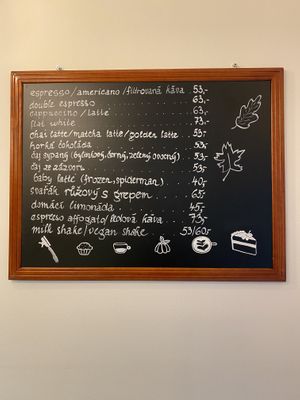 espresso/americano/filtrovaná káva 53,-
double espresso 63,-
cappuccino/latté 63,-
flat white 73,-
chai latte/matcha latte/golden latte 53,-
horká čokoláda 53,-
čaj sypaný (bylinný, černý, zelený, ovocný) 53,-
čaj ze zázvoru 53,-
baby latté (frozen, spiderman) 40,-
svařák růžový s grepem 65,-
domácí limonáda 45,-
espresso affogato/ledová káva 73,-
milk shake/vegan shake 53/60,-